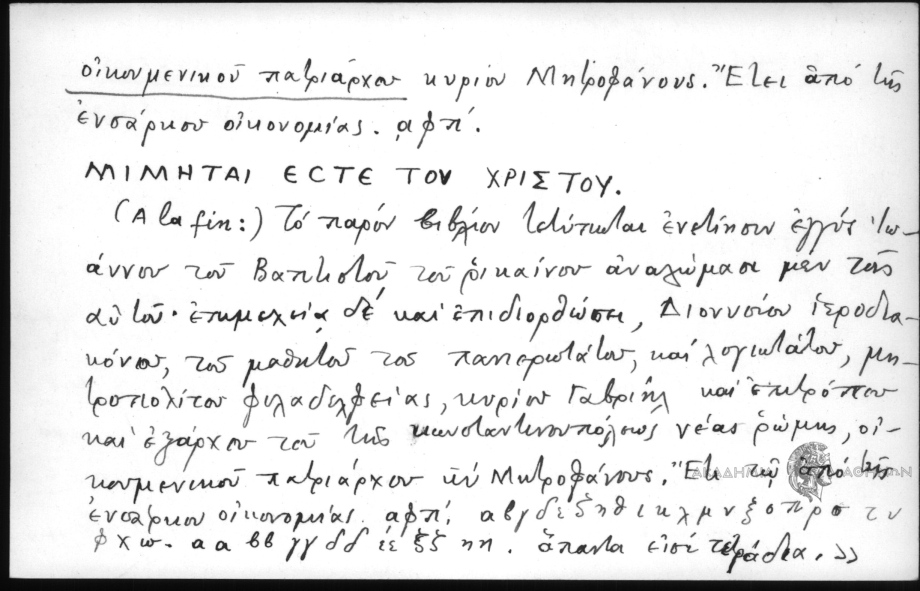 οἰκουμενικοῦ πατριάρχου κυρίου Μητροφάνους. Ἔτει ἀπό τῆς
ἐνσάρκου οἰκονομίας. αφπ΄.
ΜΙΜΗΤΑΙ ΕCΤΕ ΤΟΥ ΧΡΙΣΤΟΥ.
(A la fin:) Τό παρόν βιβλίον τετύπωται ἐνετίησιν ἐγγύς Ἰω-
άννου τοῦ Βαπτιστοῦ τοῦ ῥικαίνου ἀναλώμασι μεν τοῖς
αὐτοῦ· ἐπιμελεία δέ καί ἐπιδιορθώσει, Διονυσίου ἱεροδια-
κόνου, τοῦ μαθητοῦ τοῦ πανιερωτάτου, καί λογιωτάτου, μη-
τροπολίτου φιλαδελφείας, κυρίου Γαβριήλ καί ἐπιτρόπου
καί ἐξάρχου τοῦ τῆς κωνσταντινουπόλεως νέας ῥώμης, οἰ-
κουμενικοῦ πατριάρχου Μητροφάνους. ἀπό τῆς
ἐνσάρκου οἰκονομίας. αφπ΄. α β γ δ ε ξ η θ ι κ λ μ ν ξ ο π ρ σ τ υ
φ χ ω. αα ββ γγ δδ εε ξξ ηη. ἅπαντα εἰσί τετράδια. »
ΑΚΑΔΗΜΙΑ ΑΘΗΝΩΝ